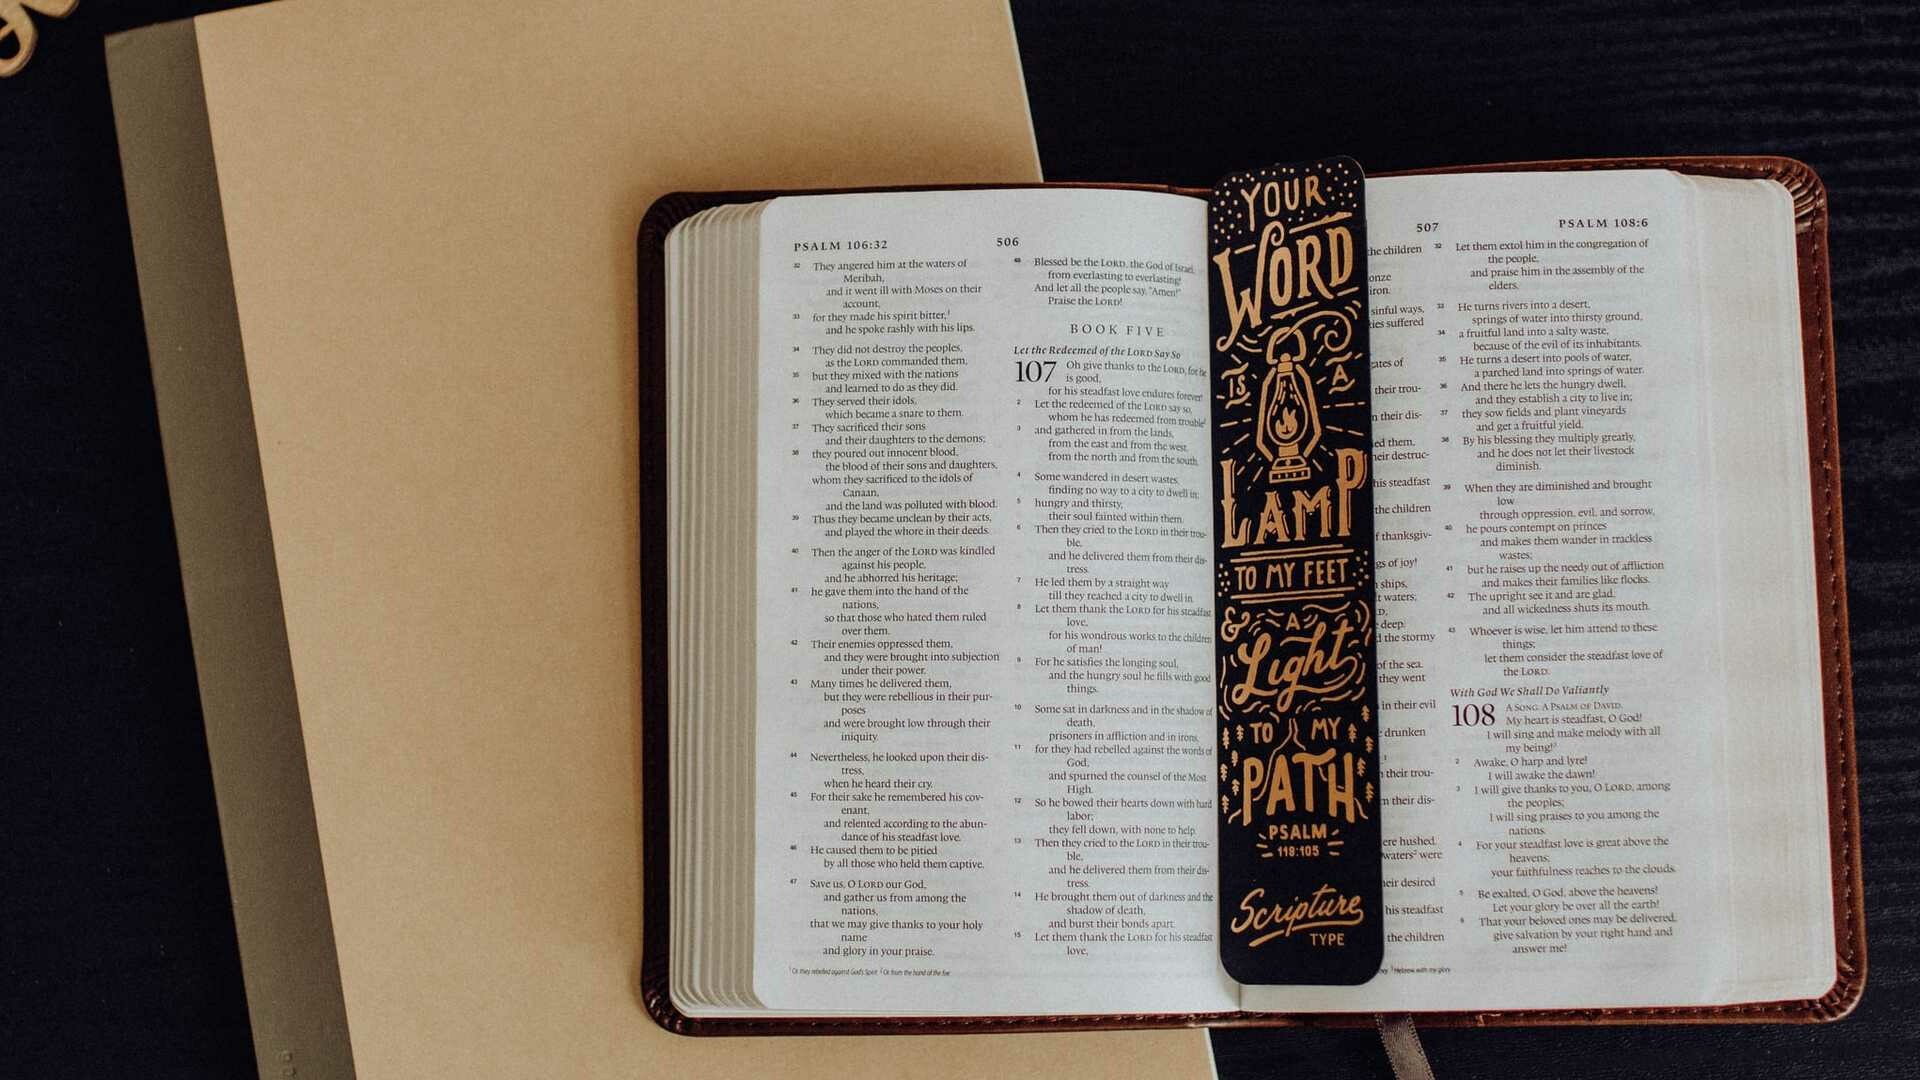 PSALM 106:32
506
32 They angered him at the waters of
Meribah,
and it went ill with Moses on their
account,
33 for they made his spirit bitter,1
and he spoke rashly with his lips.
34 They did not destroy the peoples,
as the LORD commanded them,
35 but they mixed with the nations
and learned to do as they did.
36 They served their idols,
which became a snare to them.
37 They sacrificed their sons
and their daughters to the demons;
38 they poured out innocent blood,
the blood of their sons and daughters,
whom they sacrificed to the idols of
Canaan,
and the land was polluted with blood.
39 Thus they became unclean by their acts,
and played the whore in their deeds.
40 Then the anger of the LORD was kindled
against his people,
and he abhorred his heritage;
41 he gave them into the hand of the
nations,
so that those who hated them ruled
over them.
42 Their enemies oppressed them,
and they were brought into subjection
under their power.
43 Many times he delivered them,
but they were rebellious in their pur-
poses
and were brought low through their
iniquity.
44 Nevertheless, he looked upon their dis-
tress,
when he heard their cry.
45 For their sake he remembered his cov-
enant,
and relented according to the abun-
dance of his steadfast love.
46 He caused them to be pitied
by all those who held them captive.
47 Save us, O LORD our God,
and gather us from among the
nations,
that we may give thanks to your holy
name
and glory in your praise.
1 Or they rebelled against God's Spirit 2 Or from the hand of the foe
48 Blessed be the LORD, the God of Israel,
from everlasting to everlasting!
And let all the people say, "Amen!"
Praise the LORD!
BOOK FIVE
Let the Redeemed of the LORD Say So
107 Oh give thanks to the LORD, for he
is good,
for his steadfast love endures forever!
2 Let the redeemed of the LORD say so,
whom he has redeemed from trouble2
3 and gathered in from the lands,
from the east and from the west,
from the north and from the south.
4 Some wandered in desert wastes,
finding no way to a city to dwell in;
5 hungry and thirsty,
their soul fainted within them.
6 Then they cried to the LORD in their trou-
ble,
and he delivered them from their dis-
tress.
7 He led them by a straight way
till they reached a city to dwell in.
8 Let them thank the LORD for his steadfast
love,
for his wondrous works to the children
of man!
9 For he satisfies the longing soul,
and the hungry soul he fills with good
things.
10 Some sat in darkness and in the shadow of
death,
prisoners in affliction and in irons,
11 for they had rebelled against the words of
God,
and spurned the counsel of the Most
High.
12 So he bowed their hearts down with hard
labor;
they fell down, with none to help.
13 Then they cried to the LORD in their trou-
ble,
and he delivered them from their dis-
tress.
14 He brought them out of darkness and the
shadow of death,
and burst their bonds apart.
15 Let them thank the LORD for his steadfast
love,
YOUR
WORD
IS A
LAMP
TO MY FEET
& A
Light
TO MY
PATH
PSALM
119:105
Scripture
TYPE
507
PSALM 108:6
the children
onze
iron.
sinful ways,
ies suffered
ates of
their trou-
n their dis-
ed them,
heir destruc-
his steadfast
the children
f thanksgiv-
gs of joy!
ships,
t waters;
D,
deep.
d the stormy
of the sea.
they went
in their evil
drunken
their trou-
m their dis-
ere hushed.
waters2 were
heir desired
his steadfast
the children
32 Let them extol him in the congregation of
the people,
and praise him in the assembly of the
elders.
33 He turns rivers into a desert,
springs of water into thirsty ground,
34 a fruitful land into a salty waste,
because of the evil of its inhabitants.
35 He turns a desert into pools of water,
a parched land into springs of water.
36 And there he lets the hungry dwell,
and they establish a city to live in;
37 they sow fields and plant vineyards
and get a fruitful yield.
38 By his blessing they multiply greatly,
and he does not let their livestock
diminish.
39 When they are diminished and brought
low
through oppression, evil, and sorrow,
40 he pours contempt on princes
and makes them wander in trackless
wastes;
41 but he raises up the needy out of affliction
and makes their families like flocks.
42 The upright see it and are glad,
and all wickedness shuts its mouth.
43 Whoever is wise, let him attend to these
things;
let them consider the steadfast love of
the LORD.
With God We Shall Do Valiantly
108 A SONG. A PSALM OF DAVID.
My heart is steadfast, O God!
I will sing and make melody with all
my being!3
2 Awake, O harp and lyre!
I will awake the dawn!
3 I will give thanks to you, O LORD, among
the peoples;
I will sing praises to you among the
nations.
4 For your steadfast love is great above the
heavens;
your faithfulness reaches to the clouds.
5 Be exalted, O God, above the heavens!
Let your glory be over all the earth!
6 That your beloved ones may be delivered,
give salvation by your right hand and
answer me!
3 Hebrew with my glory